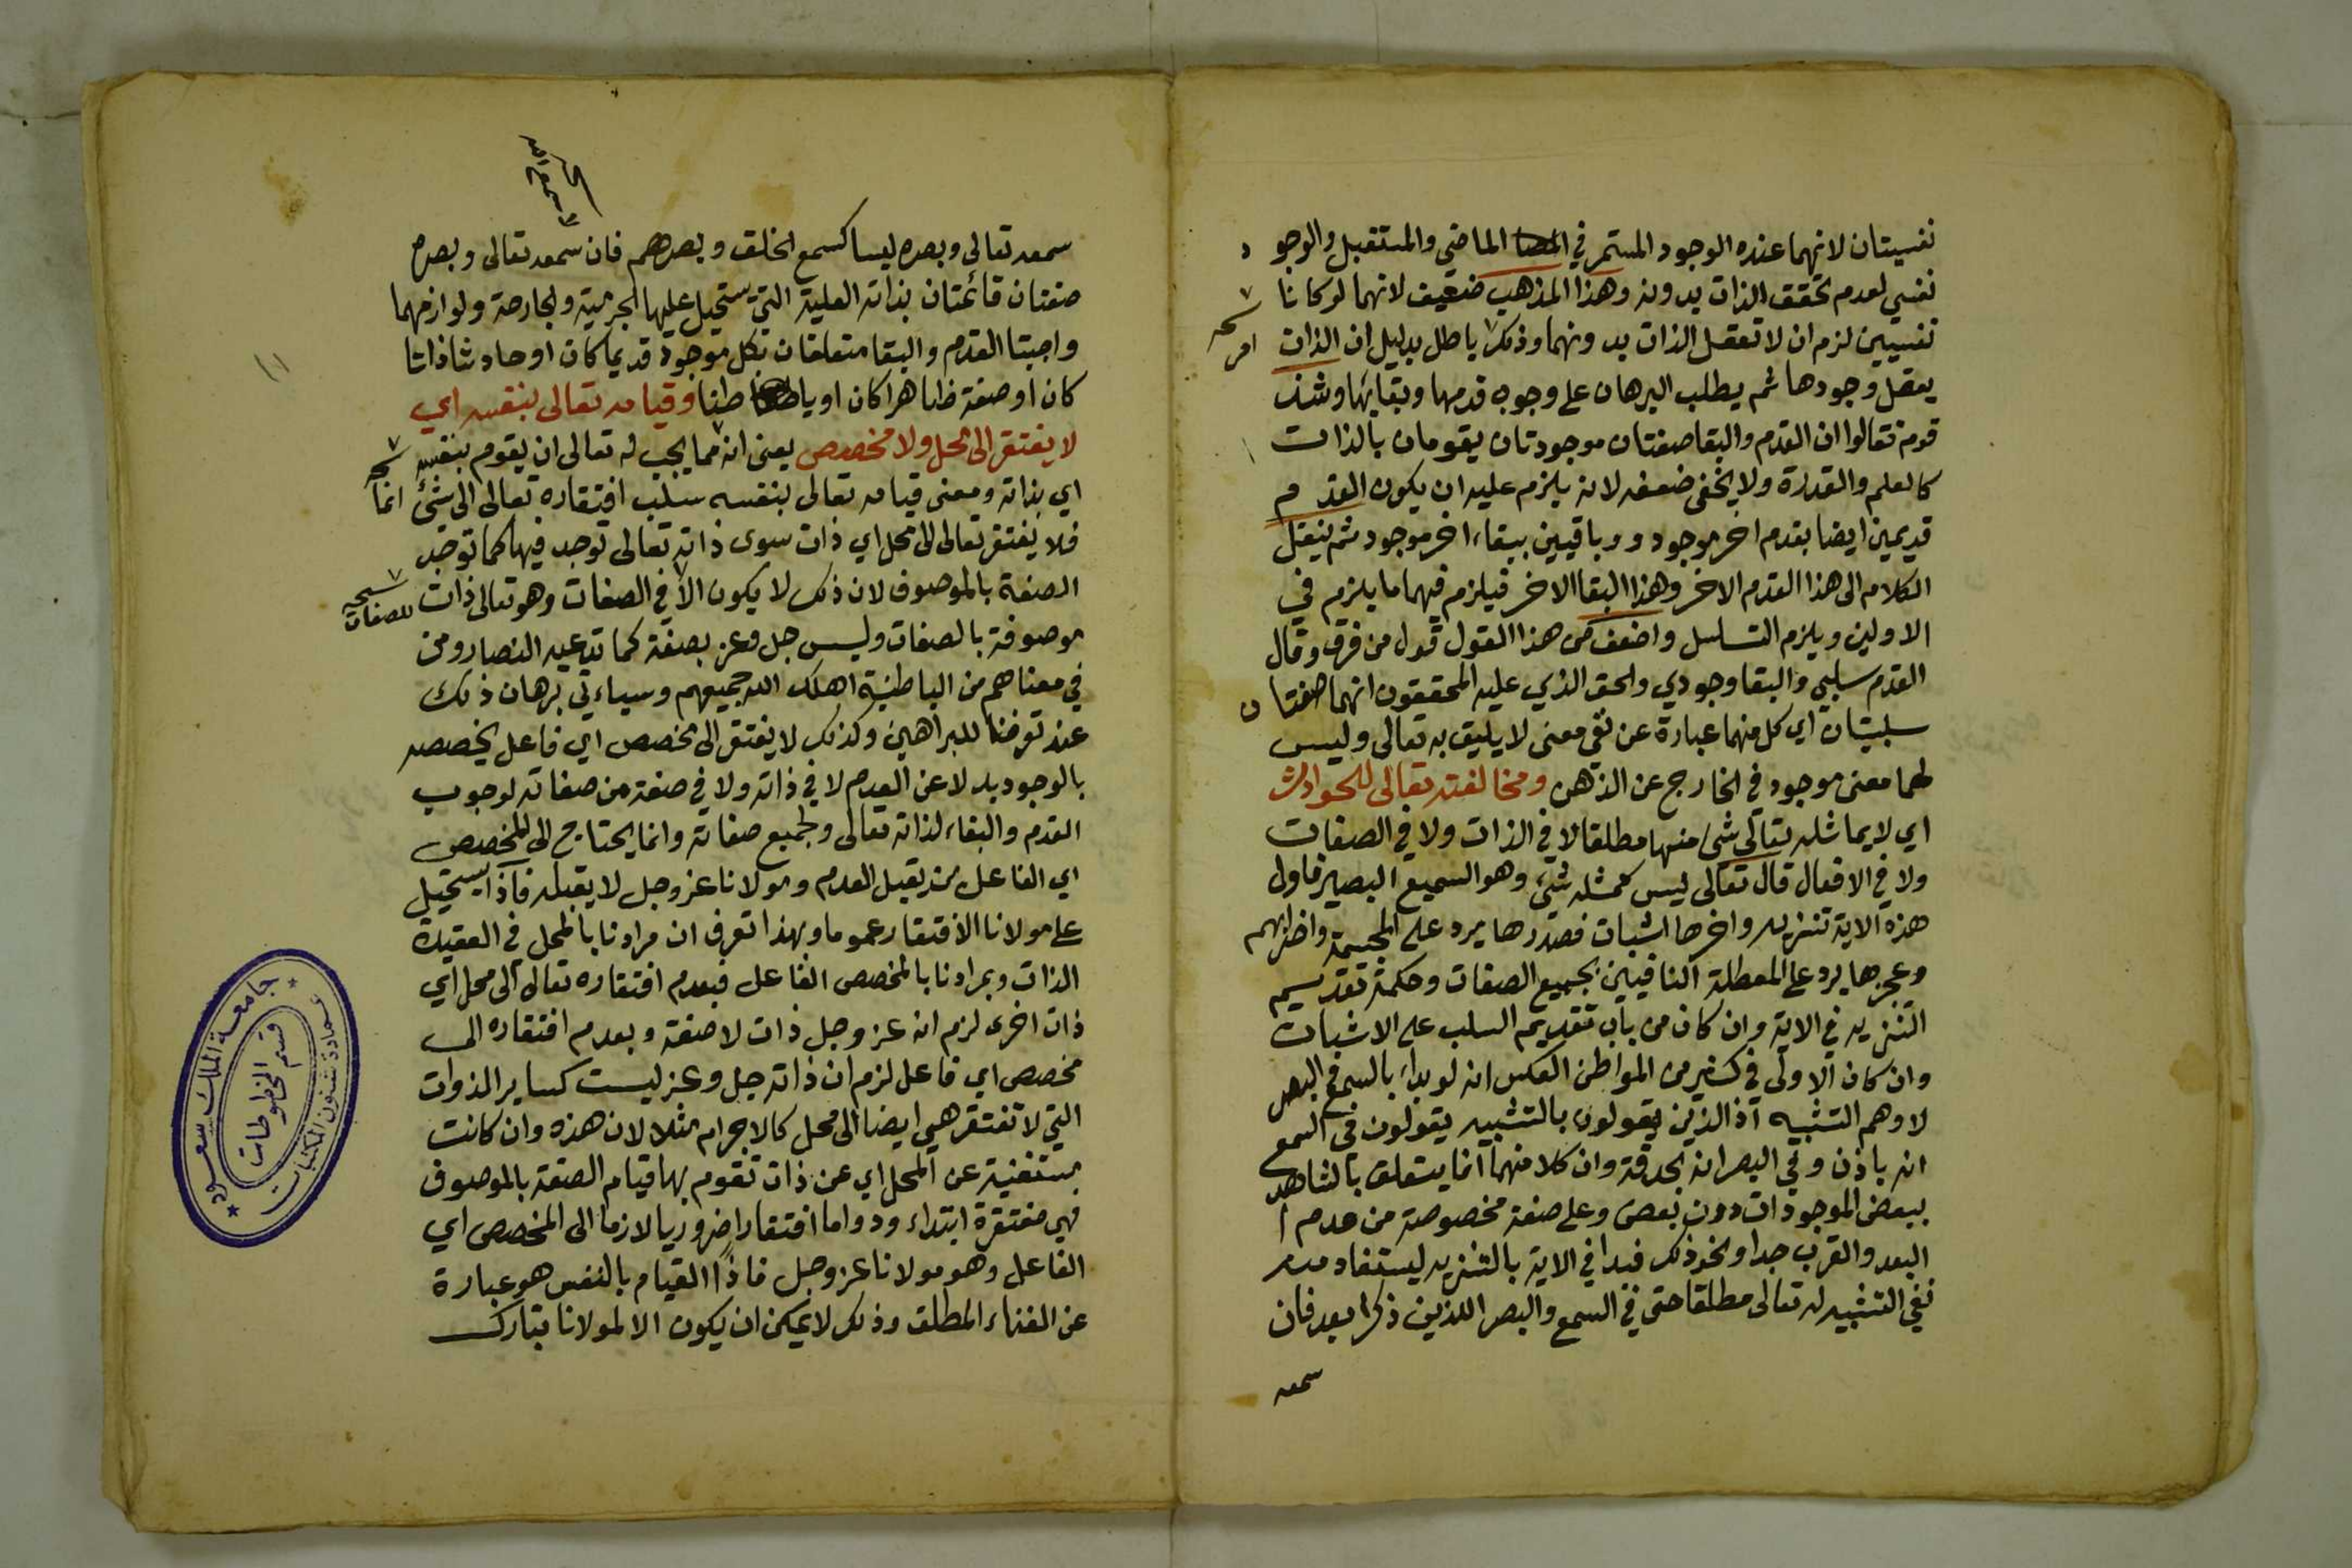 نفسيتان لانهما عنده الوجود المستمر في الماضي والمستقبل والوجو د
نفسي لعدم تحقق الذات بدونه وهذا المذهب ضعيف لانهما لو كانا
نفسيين لزم ان لا تعقل الذات بدونهما وذلك باطل بدليل ان الذات
يعقل وجودها ثم يطلب البرهان على وجوب قدمها وبقايها وشذ
قوم فقالوا ان القدم والبقا صفتان موجودتان يقومان بالذات
كالعلم والقدرة ولا يخفى ضعفه لانه يلزم عليه ان يكون القد م
قديمين ايضا بقدم اخر موجود و وباقيين ببقاء اخر موجود ثم ينقل
الكلام الى هذا القدم الاخر وهذا البقا الاخر فيلزم فيهما ما يلزم في
الاولين ويلزم التسلسل واضعف من هذا القول قول من فرق وقال
القدم سلبي والبقا وجودي والحق الذي عليه المحققون انهما صفتا ن
سلبيتان اي كل منهما عبارة عن نفي معنى لا يليق به تعالى وليس
لهما معنى موجود في الخارج عن الذهن ومخالفته تعالى للحوادث
اي لا يماثله تعالى شئ منها مطلقا لا في الذات ولا في الصفات
ولا في الافعال قال تعالى ليس كمثله شئ وهو السميع البصير فاول
هذه الاية تنزيه واخرها اثبات فصدرها يرد على المجسمة واضرابهم
وعجزها يرد على المعطلة النافيين بجميع الصفات وحكمة تقديم
التنزيه في الاية وان كان من باب تقديم السلب على الاثبات
وان كان الاولى في كثير من المواطن العكس انه لو بداء بالسمع والبصر
لاوهم التشبيه اذ الذين يقولون بالتشبيه يقولون في السمع
انه باذن وفي البصر انه بحدقة وان كلا منهما انما يتعلق بالشاهد
ببعض الموجودات دون بعض وعلى صفة مخصوصة من عدم ا
البعد والقرب جدا ونحو ذلك فبدا في الاية بالتنزيه ليستفاد منه
نفي التشبيه له تعالى مطلقا حتى في السمع والبصر اللذين ذكرا بعد فان
سمعه
سمعه تعالى وبصره ليسا كسمع الخلق وبصرهم فان سمعه تعالى وبصره
صفتان قائمتان بذاته العلية التي يستحيل عليها الجرمية والجارحة ولوازمهما
واجبتا القدم والبقا متعلقان بكل موجود قديما كان او حادثا ذاتا
كان او صفة ظاهرا كان او باطنا وقيامه تعالى بنفسه اي
لا يفتقر الى محل ولا مخصص يعنى انه مما يجب له تعالى ان يقوم بنفسه
اي بذاته ومعنى قيامه تعالى بنفسه سلب افتقاره تعالى الى شئ
فلا يفتقر تعالى الى محل اي ذات سوى ذاته تعالى توجد فيها كما توجد
الصفة بالموصوف لان ذلك لا يكون الا في الصفات وهو تعالى ذات
للصفات
موصوفة بالصفات وليس جل وعز بصفة كما تدعيه النصارى ومن
في معناهم من الباطنية اهلك الله جميعهم وسياءتي برهان ذلك
عند تعرضنا للبراهين وكذلك لا يفتقر الى مخصص اي فاعل يخصصه
بالوجود بدلا عن العدم لا في ذاته ولا في صفة من صفاته لوجوب
القدم والبقاء لذاته تعالى ولجميع صفاته وانما يحتاج الى المخصص
اي الفاعل من يقبل العدم ومولانا عز وجل لا يقبله فاذا يستحيل
على مولانا الافتقار عموما وبهذا تعرف ان مرادنا بالمحل في العقيدة
الذات ومرادنا بالمخصص الفاعل فبعدم افتقاره تعالى الى محل اي
ذات اخرى لزم انه عز وجل ذات لا صفة وبعدم افتقاره الى
مخصص اي فاعل لزم ان ذاته جل وعز ليست كساير الذوات
التي لا تفتقر هي ايضا الى محل كالاجرام مثلا لان هذه وان كانت
مستغنية عن المحل اي عن ذات تقوم بها قيام الصفة بالموصوف
فهي مفتقرة ابتداء ودواما افتقارا ضروريا لازما الى المخصص اي
الفاعل وهو مولانا عز وجل فاذا القيام بالنفس هو عبارة
عن الغناء المطلق وذلك لا يمكن ان يكون الا لمولانا تبارك
١١
جامعة الملك سعود
عمادة شئون المكتبات
قسم المخطوطات